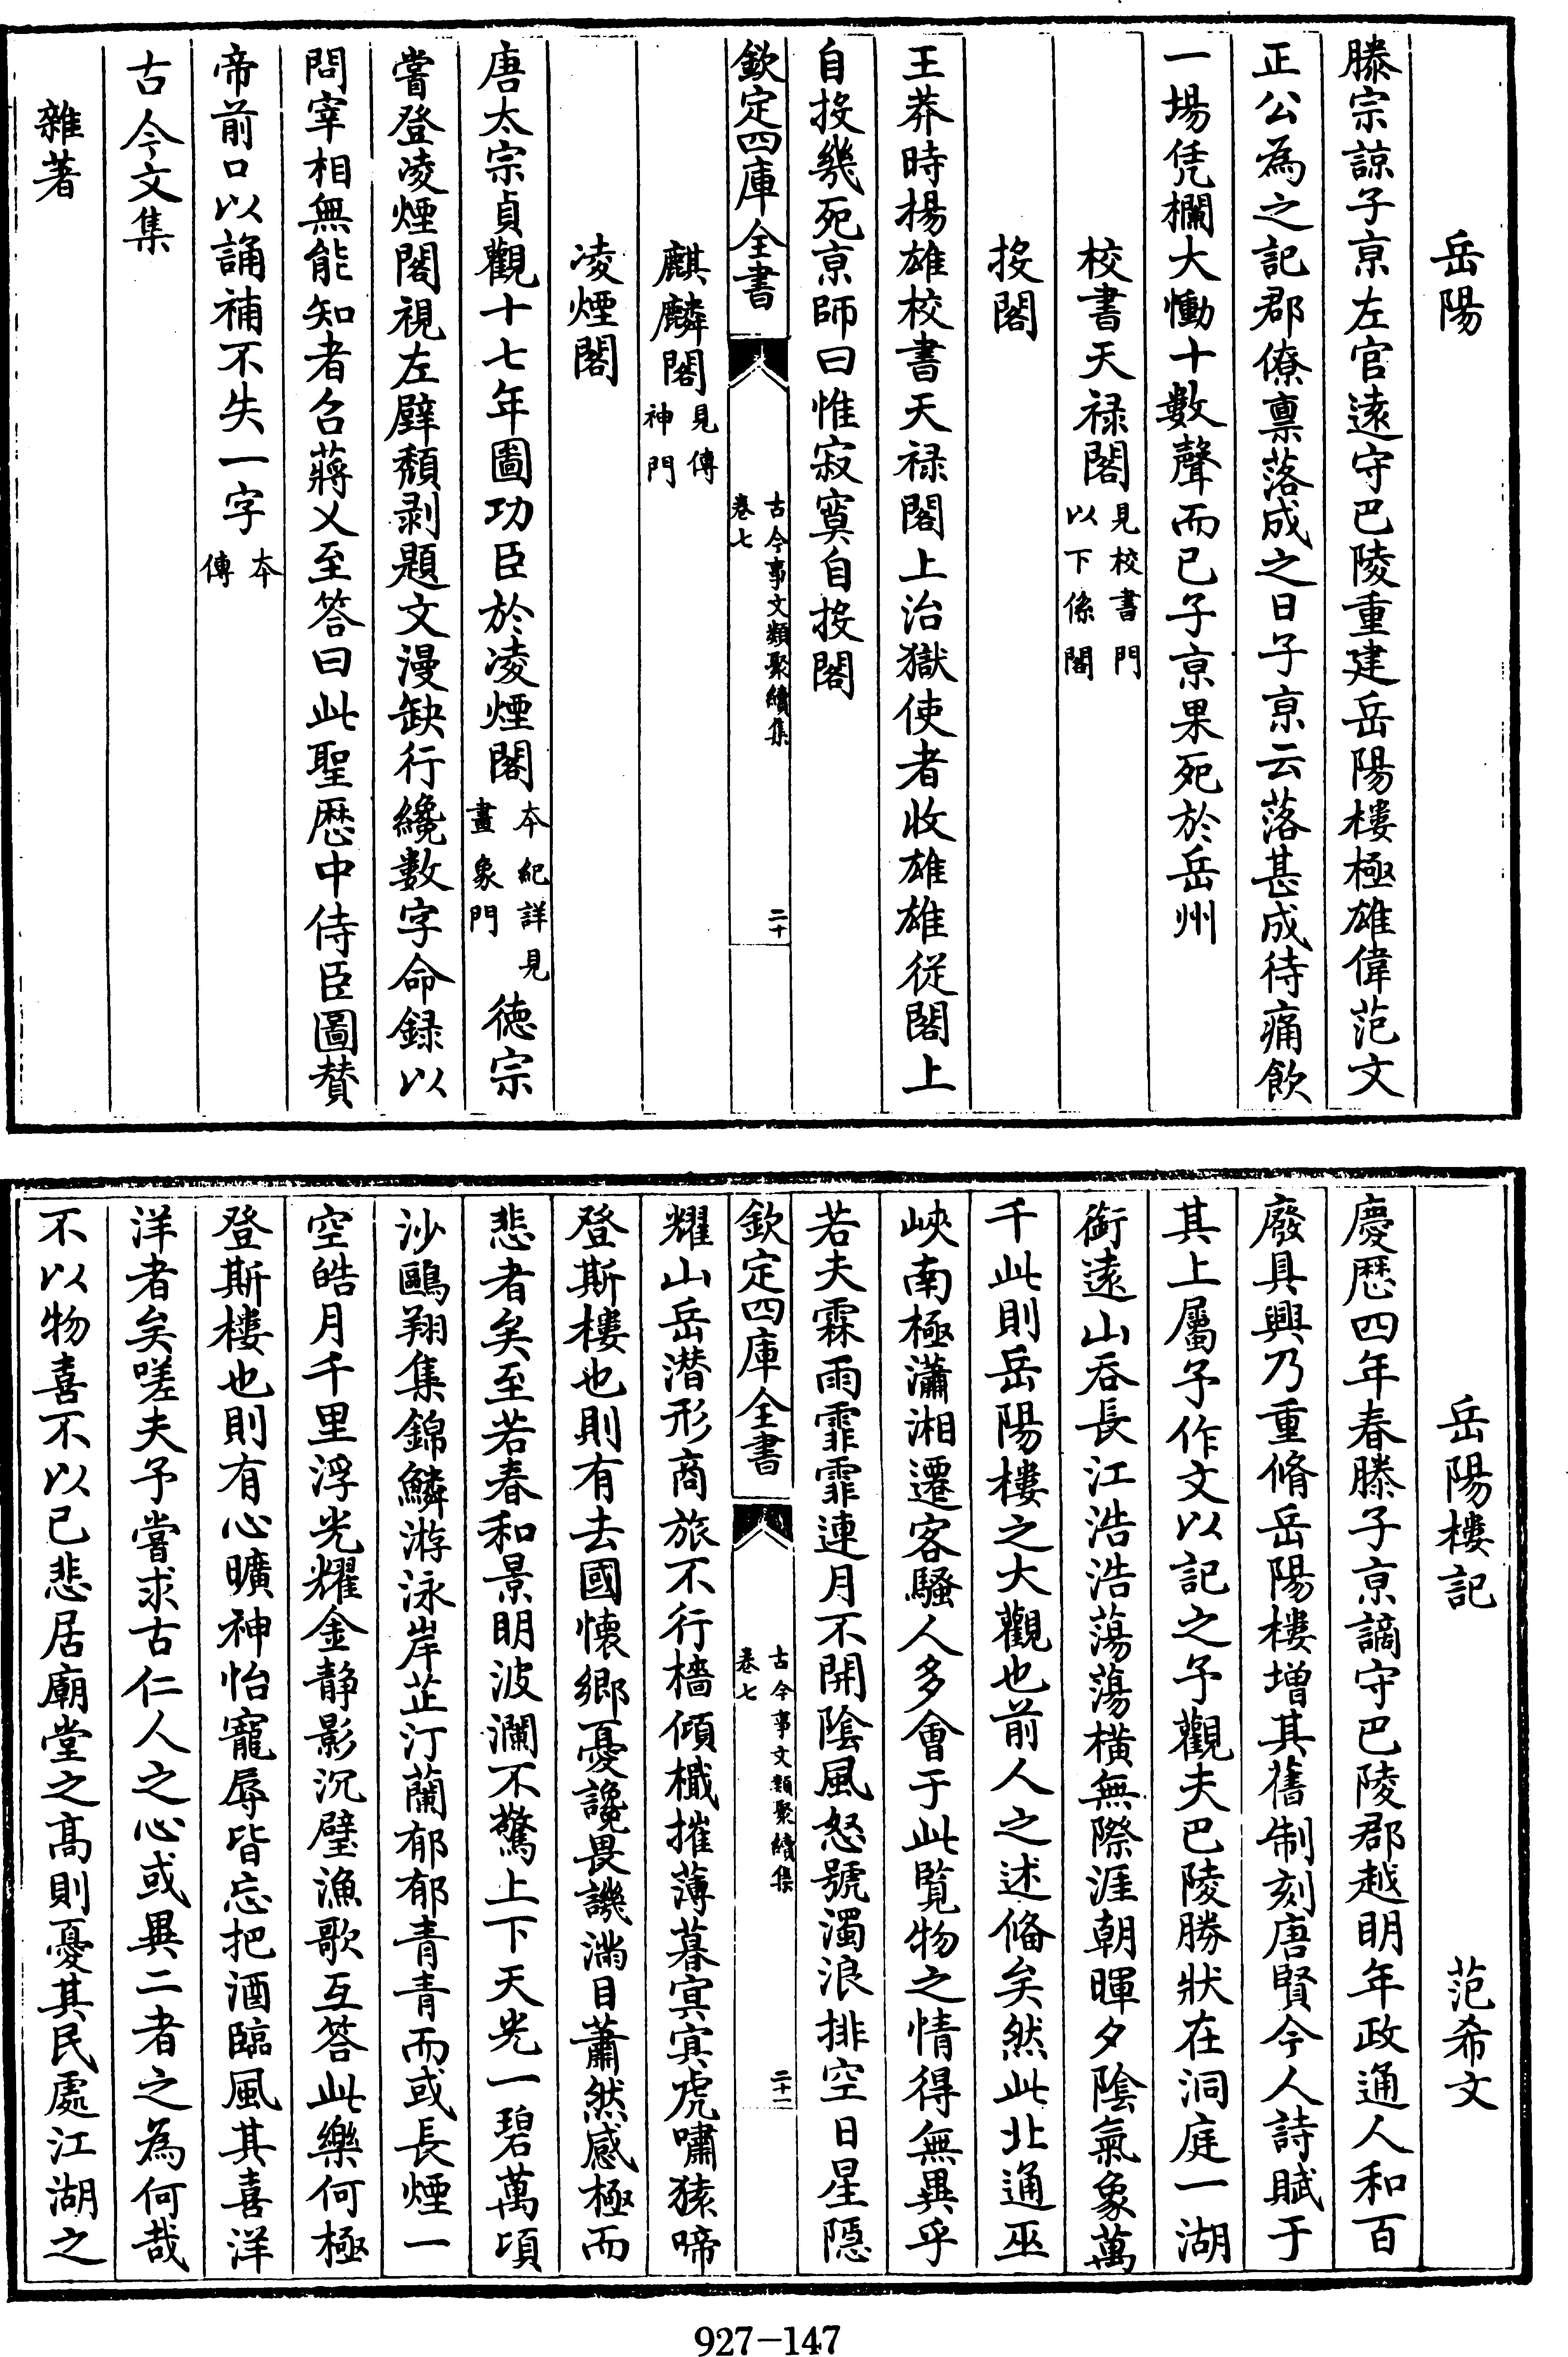 岳陽
滕宗諒子京左官遠守巴陵重建岳陽樓極雄偉范文
正公為之記郡僚禀落成之日子京云落甚成待痛飲
一場凭欄大慟十數聲而已子京果死於岳州
校書天禄閣見校書門以下係閣
投閣
王莽時揚雄校書天禄閣上治獄使者收雄雄從閣上
自投幾死京師曰惟寂寞自投閣
欽定四庫全書
古今事文類聚續集
卷七
二十
麒麟閣見傳神門
凌煙閣
唐太宗貞觀十七年圖功臣於凌煙閣本紀詳見畫象門德宗
嘗登凌煙閣視左壁頽剥題文漫缺行纔數字命録以
問宰相無能知者召蔣乂至答曰此聖厯中侍臣圖賛
帝前口以誦補不失一字本傳
古今文集
雜著
岳陽樓記 范希文
慶厯四年春滕子京謫守巴陵郡越明年政通人和百
廢具興乃重脩岳陽樓增其舊制刻唐賢今人詩賦于
其上屬予作文以記之予觀夫巴陵勝狀在洞庭一湖
銜遠山吞長江浩浩蕩蕩橫無際涯朝暉夕陰氣象萬
千此則岳陽樓之大觀也前人之述備矣然此北通巫
峽南極瀟湘遷客騷人多會于此覧物之情得無異乎
若夫霖雨霏霏連月不開陰風怒號濁浪排空日星隱
欽定四庫全書
古今事文類聚續集
卷七
二十一
耀山岳潜形商旅不行檣傾檝摧薄暮冥冥虎嘯猿啼
登斯樓也則有去國懐鄉憂讒畏譏滿目蕭然感極而
悲者矣至若春和景明波瀾不驚上下天光一碧萬頃
沙鷗翔集錦鱗游泳岸芷汀蘭郁郁青青而或長煙一
空皓月千里浮光耀金静影沉璧漁歌互答此樂何極
登斯樓也則有心曠神怡寵辱皆忘把酒臨風其喜洋
洋者矣嗟夫予嘗求古仁人之心或異二者之為何哉
不以物喜不以已悲居廟堂之高則憂其民處江湖之
927-147